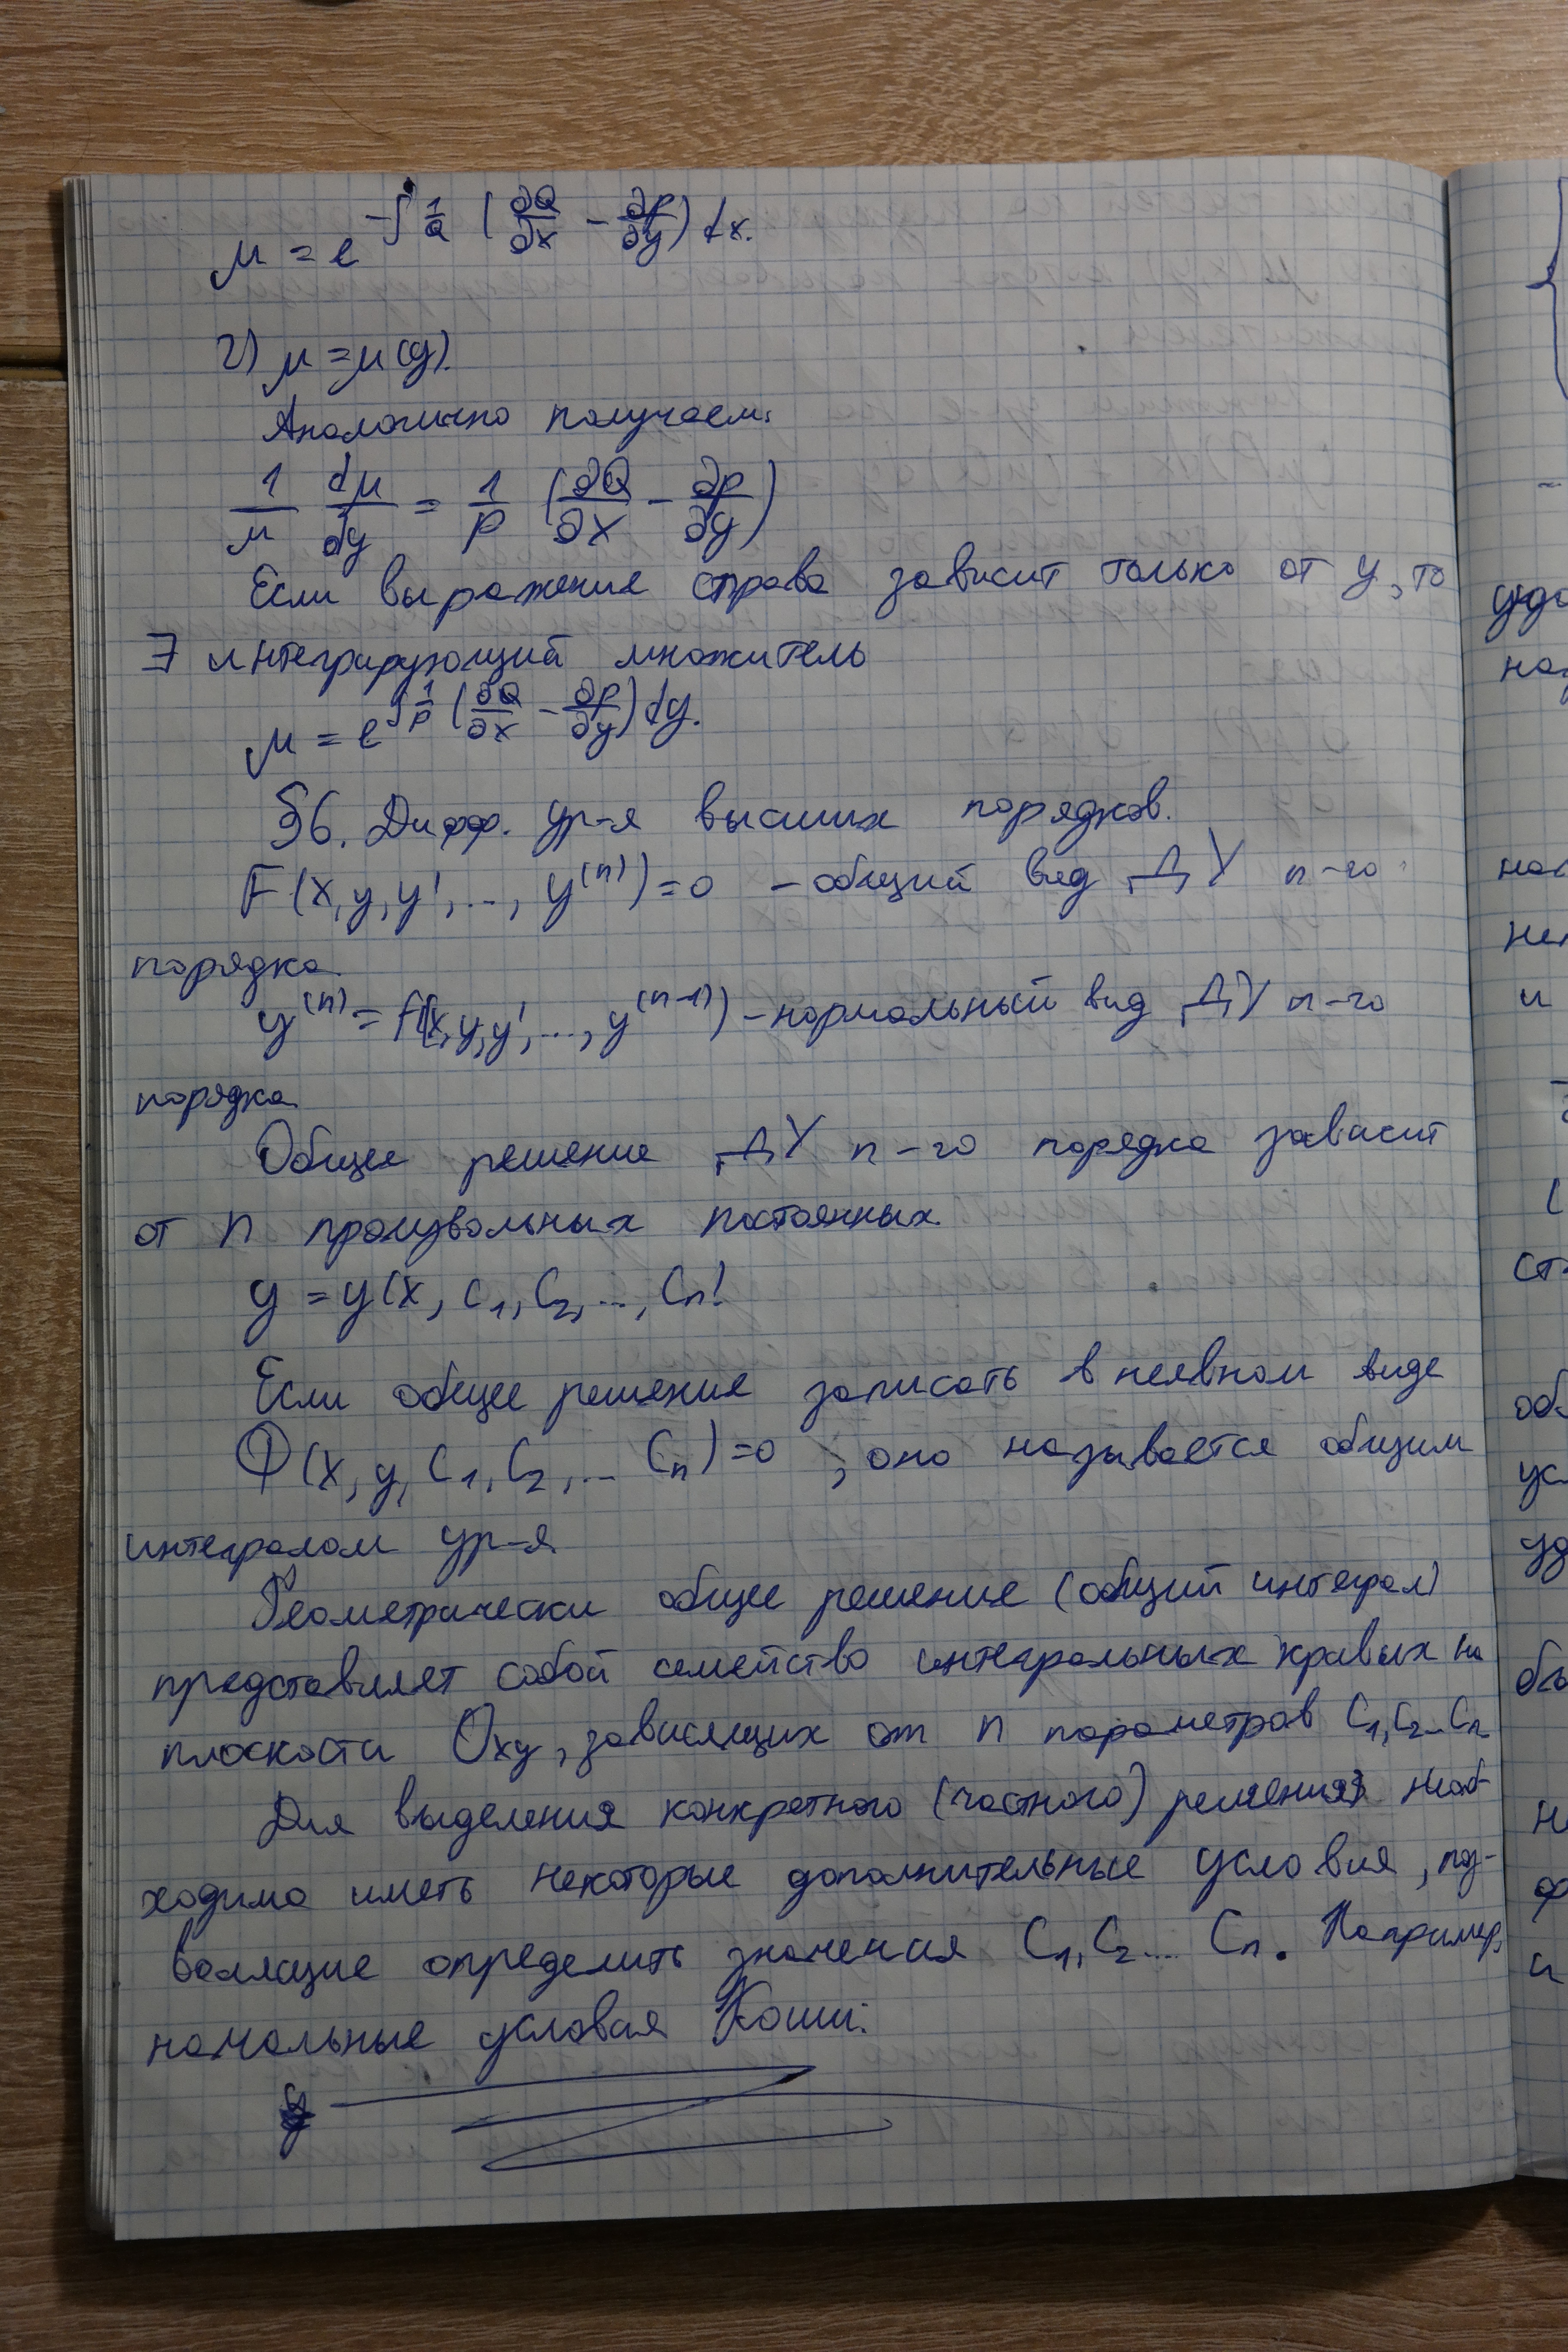 μ = e^{-∫ 1/Q (∂Q/∂x - ∂P/∂y) dx}.
2) μ = μ(y).
Аналогично получаем:
1/μ dμ/dy = 1/P (∂Q/∂x - ∂P/∂y)
Если выражение справа зависит только от y, то
∃ интегрирующий множитель
μ = e^{∫ 1/P (∂Q/∂x - ∂P/∂y) dy}.
§6. Дифф. ур-я высших порядков.
F(x, y, y', ..., y^{(n)}) = 0 – общий вид ДУ n-го
порядка.
y^{(n)} = f(x, y, y', ..., y^{(n-1)}) – нормальный вид ДУ n-го
порядка
Общее решение ДУ n-го порядка зависит
от n произвольных постоянных.
y = y(x, C_1, C_2, ..., C_n)
Если общее решение записать в неявном виде
Ф(x, y, C_1, C_2, ... C_n) = 0, оно называется общим
интегралом ур-я.
Геометрически общее решение (общий интеграл)
представляет собой семейство интегральных кривых на
плоскости Oxy, зависящих от n параметров C_1, C_2...C_n
Для выделения конкретного (частного) решения необ-
ходимо иметь некоторые дополнительные условия, поз-
воляющие определить значения C_1, C_2 ... C_n. Например,
начальные условия Коши: